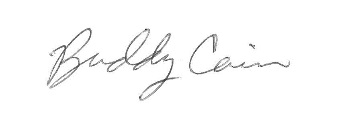 Buddy Cain